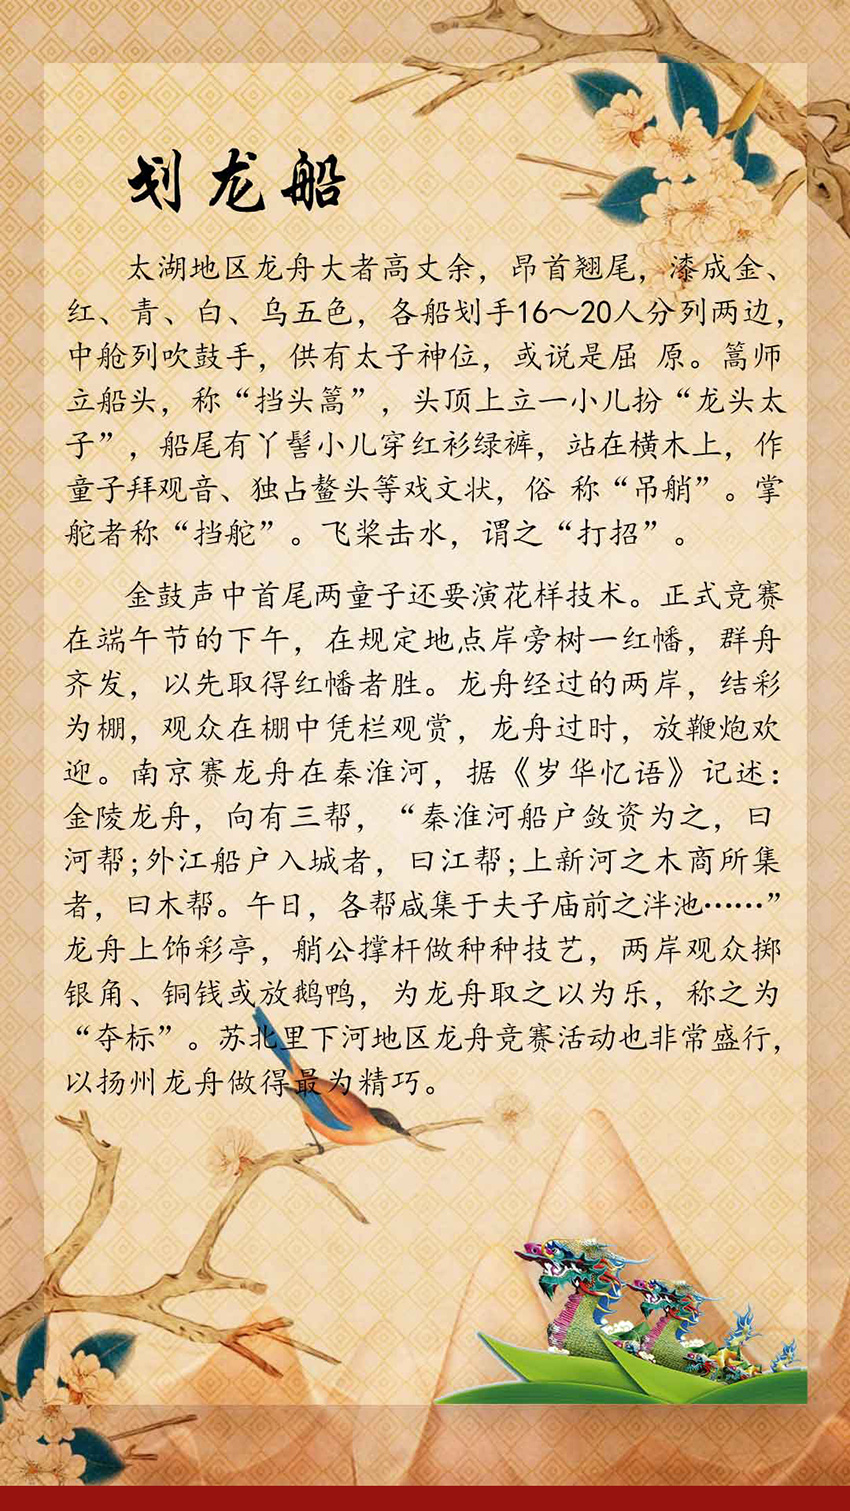 划龙船
太湖地区龙舟大者高丈余，昂首翘尾，漆成金、
红、青、白、乌五色，各船划手16～20人分列两边，
中舱列吹鼓手，供有太子神位，或说是屈 原。篙师
立船头，称“挡头篙”，头顶上立一小儿扮“龙头太
子”，船尾有丫髻小儿穿红衫绿裤，站在横木上，作
童子拜观音、独占鳌头等戏文状，俗 称“吊艄”。掌
舵者称“挡舵”。飞桨击水，谓之“打招”。
金鼓声中首尾两童子还要演花样技术。正式竞赛
在端午节的下午，在规定地点岸旁树一红幡，群舟
齐发，以先取得红幡者胜。龙舟经过的两岸，结彩
为棚，观众在棚中凭栏观赏，龙舟过时，放鞭炮欢
迎。南京赛龙舟在秦淮河，据《岁华忆语》记述：
金陵龙舟，向有三帮，“秦淮河船户敛资为之，曰
河帮;外江船户入城者，曰江帮;上新河之木商所集
者，曰木帮。午日，各帮咸集于夫子庙前之泮池……”
龙舟上饰彩亭，艄公撑杆做种种技艺，两岸观众掷
银角、铜钱或放鹅鸭，为龙舟取之以为乐，称之为
“夺标”。苏北里下河地区龙舟竞赛活动也非常盛行，
以扬州龙舟做得最为精巧。